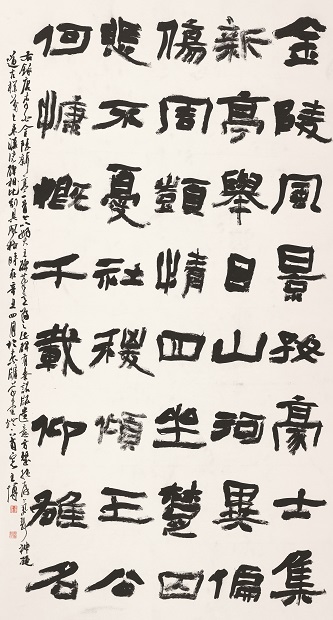 金陵風景好豪士集
新亭舉目山河異偏
傷周顗情四坐楚囚
悲不憂社稷傾王公
何慷慨千載仰雄名
右錄唐李白金陵新亭一首
時在辛丑四月